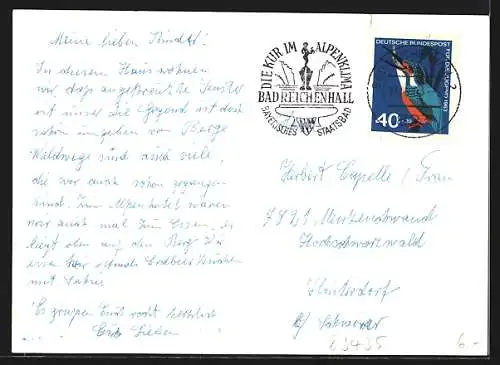 Meine lieben Kinder!
In diesem Haus wohnen
wir das angekreuzte Fenster
ist unser die Gegend ist doch
schön umgeben von Berge
Waldwege sind auch viele,
die wir auch schon gegangen
sind. Im Alpenhotel waren
wir auch mal zum Essen, es
liegt oben auf den Berg
Erdbeerkuchen
mit Sahne
Es grüßen Euch recht herzlich
Eure Lieben
DIE KUR IM ALPENKLIMA
BAD REICHENHALL
BAYERISCHES STAATSBAD
DEUTSCHE BUNDESPOST
FÜR DIE JUGEND 1963
40
Herbert Capelle / Frau
7821 Menzenschwand
Hochschwarzwald
Hinterdorf
83435
6.-